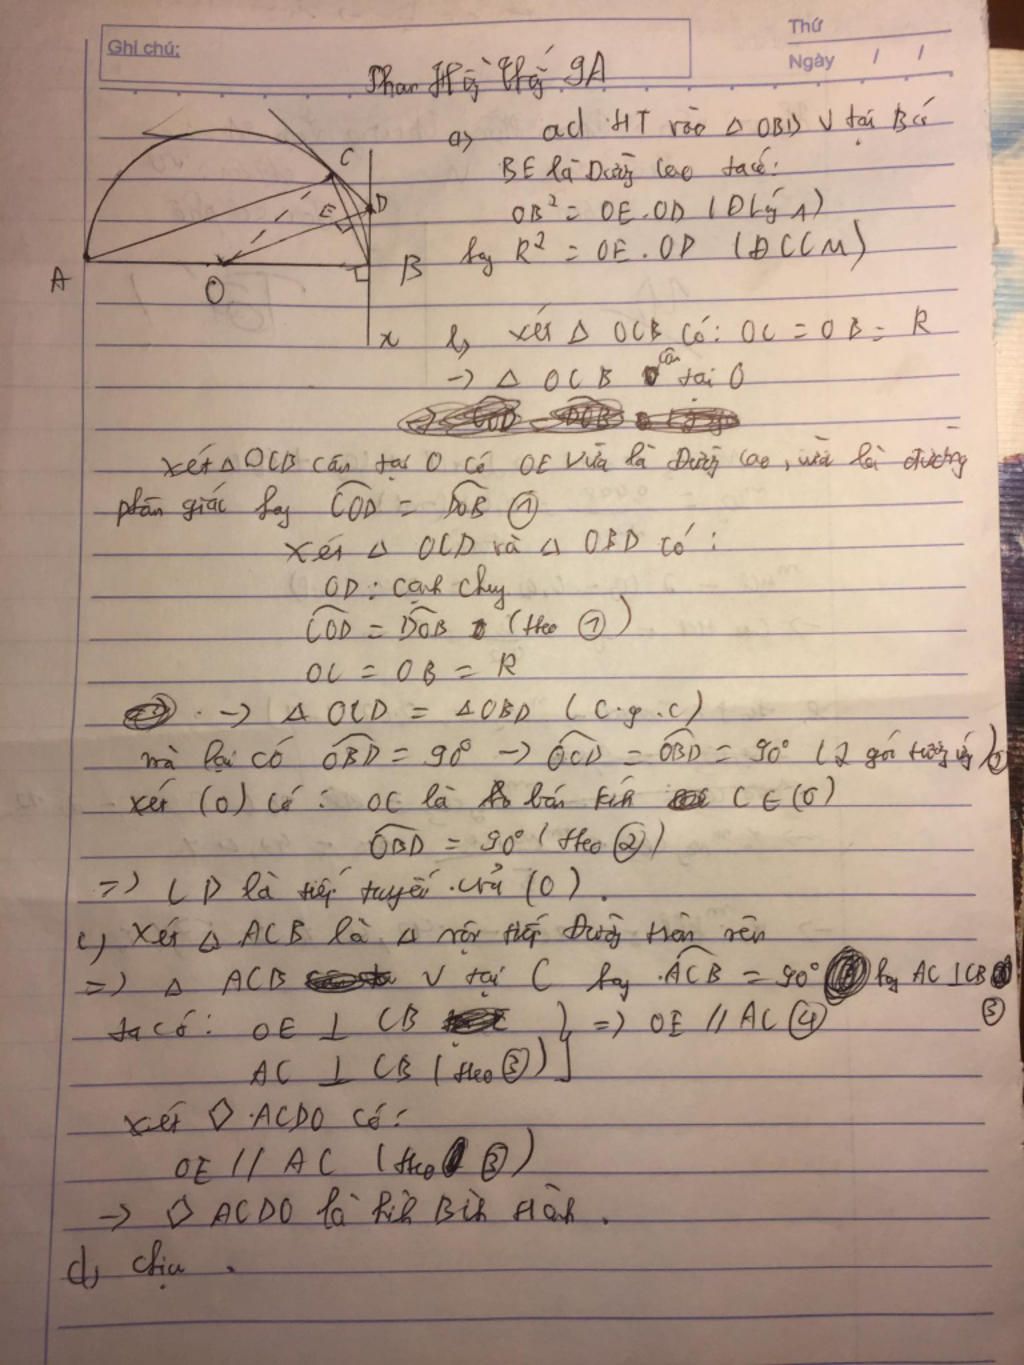 Ghi chú:
Thứ
Ngày / /
Phan 9A
C
E
D
A
O
B
x
a) ad HT vào △ OBD V tại B có
BE là Đường cao ta có:
OB² = OE.OD (Đlý 1)
hay R² = OE.OD (ĐCCM)
b, xét △ OCB có: OC = OB = R
-> △ OCB cân tại O
xét △ OCB cân tại O có OE vừa là Đường cao, vừa là đường
phân giác hay COD = DOB ①
xét △ OCD và △ OBD có:
OD: cạnh chug
COD = DOB (theo ①)
OC = OB = R
-> △ OCD = △OBD (c.g.c)
mà lại có OBD = 90° -> OCD = OBD = 90° (2 góc tương ứg) ②
xét (O) có: OC là bán kíh C ∈ (O)
OBD = 90° (theo ②)
=> CD là tiếp tuyến của (O).
c, xét △ ACB là △ nội tiếp Đường tròn nên
=> △ ACB V tại C hay ACB = 90° hay AC ⊥ CB
③
ta có: OE ⊥ CB } => OE // AC ④
AC ⊥ CB (theo ③)
xét ◇ ACDO có:
OE // AC (theo ③)
-> ◇ ACDO là hìh Bìh Hàh.
d, chịu.